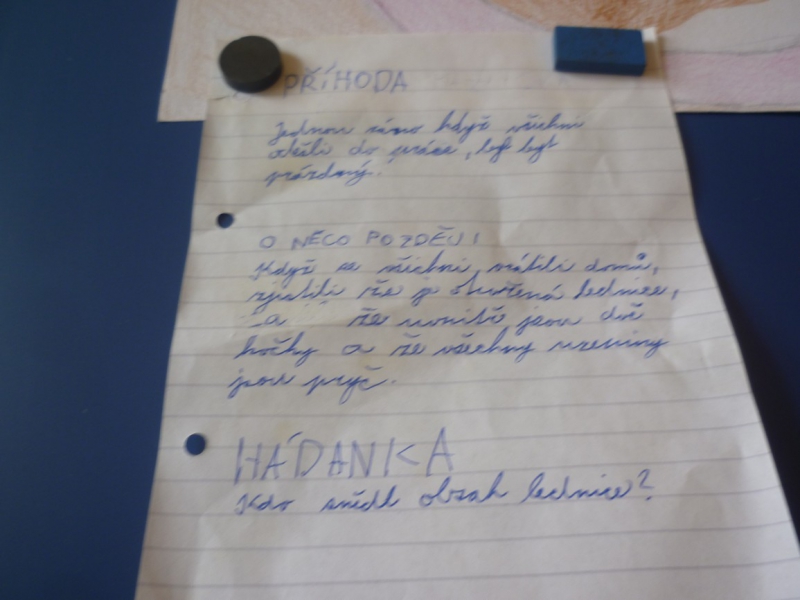 PŘÍHODA
Jednou ráno když všichni
odešli do práce, byl byt
prázdný.
O NĚCO POZDĚJI
Když se všichni vrátili domů,
zjistili že je otevřená lednice,
a že uvnitř jsou dvě
kočky a že všechny uzeniny
jsou pryč.
HÁDANKA
Kdo snědl obsah lednice?